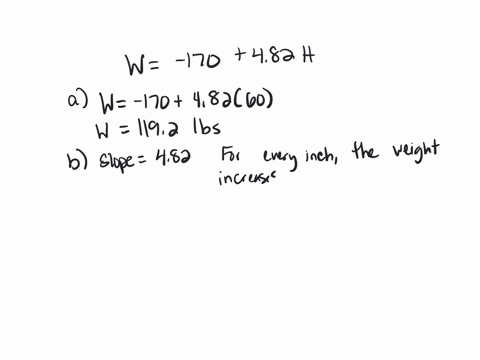 W = -170 + 4.82 H
a) W = -170 + 4.82(60)
W = 119.2 lbs
b) slope = 4.82 For every inch, the weight
increase